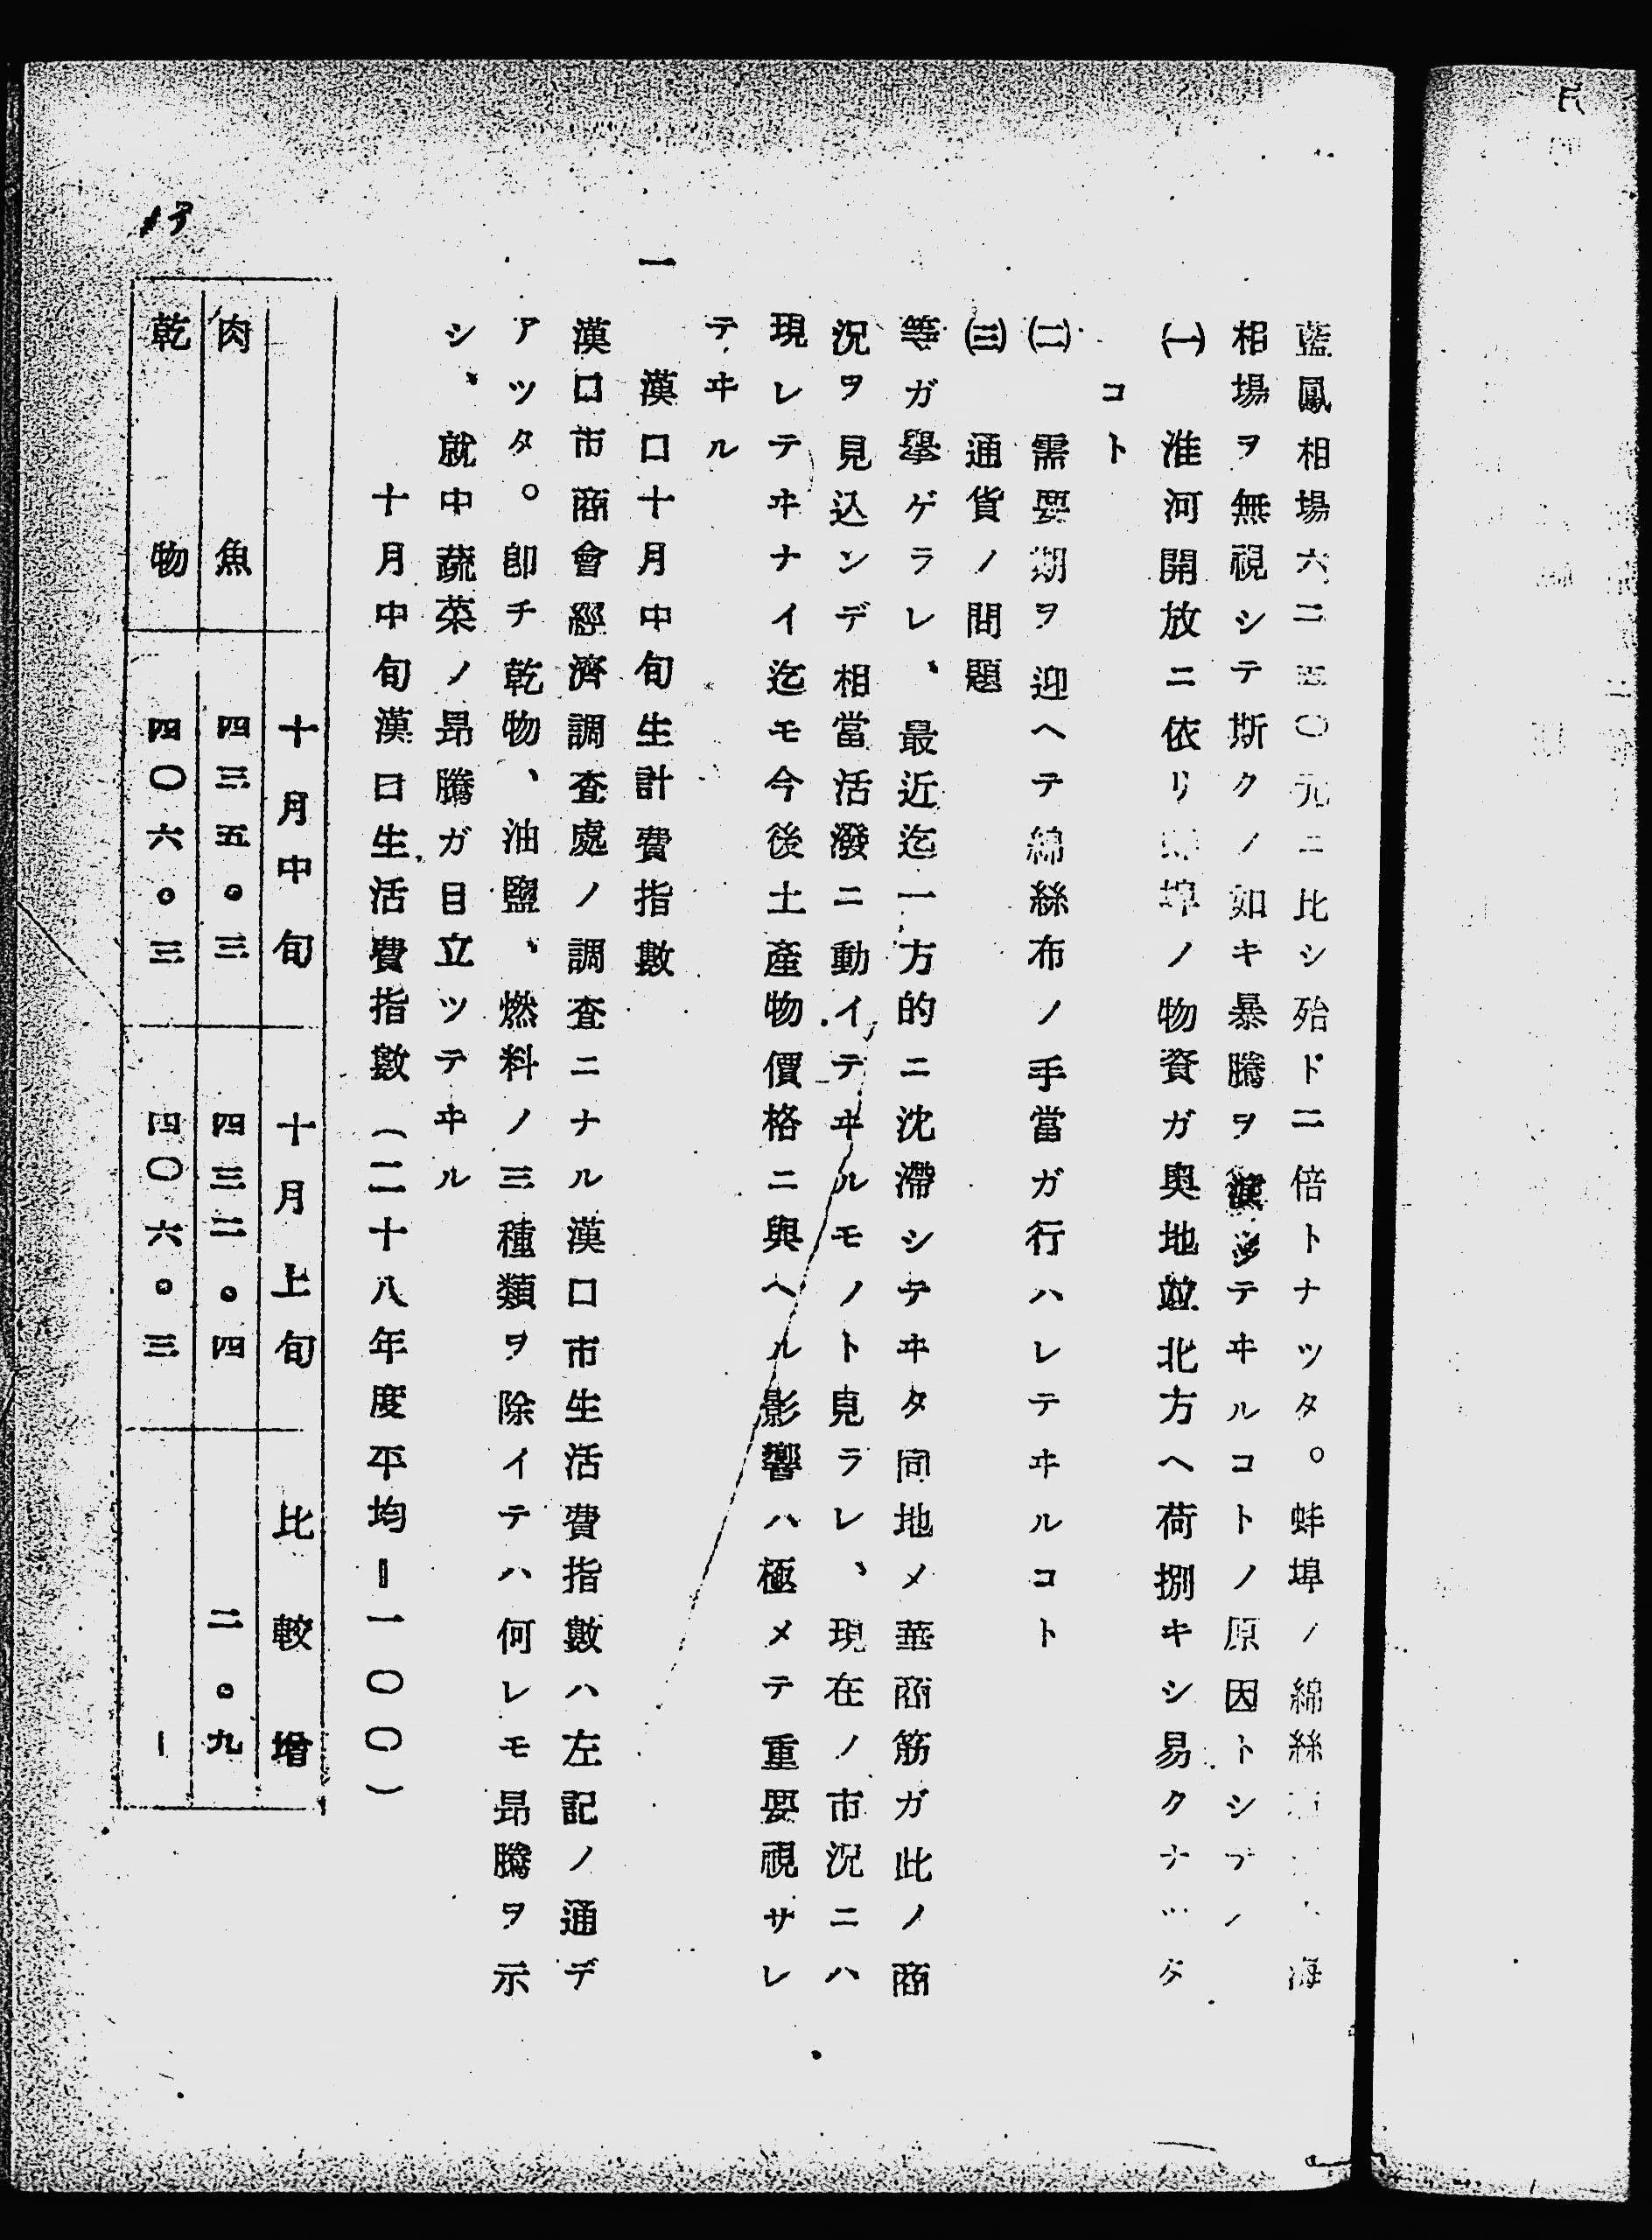 藍鳳相場六二五〇元ニ比シ殆ド二倍トナツタ。蚌埠ノ綿絲 海
相場ヲ無視シテ斯クノ如キ暴騰ヲ テヰルコトノ原因トシテハ
㈠ 淮河開放ニ依リ 埠ノ物資ガ奧地並北方ヘ荷捌キシ易クナツタ
コト
㈡ 需要期ヲ迎ヘテ綿絲布ノ手當ガ行ハレテヰルコト
㈢ 通貨ノ問題
等ガ擧ゲラレ、最近迄一方的ニ沈滯シテヰタ同地メ華商筋ガ此ノ商
況ヲ見込ンデ相當活潑ニ動イテヰルモノト見ラレ、現在ノ市況ニハ
現レテヰナイ迄モ今後土產物價格ニ與ヘル影響ハ極メテ重要視サレ
テヰル
一 漢口十月中旬生計費指數
漢口市商會經濟調查處ノ調查ニナル漢口市生活費指數ハ左記ノ通デ
アツタ。卽チ乾物、油鹽、燃料ノ三種類ヲ除イテハ何レモ昂騰ヲ示
シ、就中蔬菜ノ昂騰ガ目立ツテヰル
十月中旬漢口生活費指數（二十八年度平均＝一〇〇）
十月中旬 十月上旬 比較增
肉魚 四三五。三 四三二。四 二。九
乾物 四〇六。三 四〇六。三 ー
13